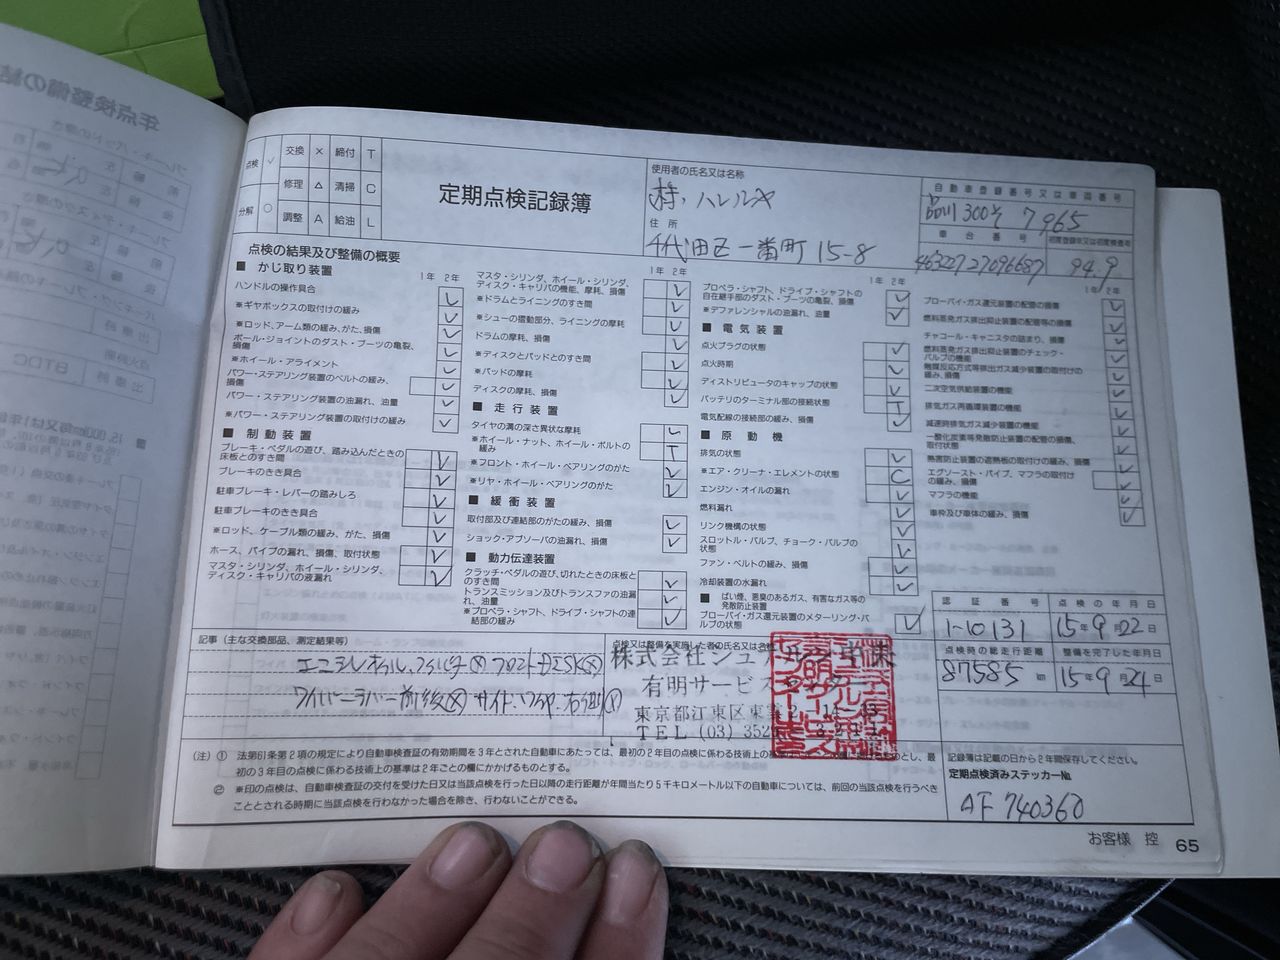 点検 ✓ 交換 × 締付 T
修理 △ 清掃 C
分解 ○ 調整 A 給油 L
定期点検記録簿
使用者の氏名又は名称
株. ハレルヤ
住所
千代田区一番町 15-8
自動車登録番号又は車両番号
品川 300 7965
車台番号
初度登録年又は初度検査年
94.9
点検の結果及び整備の概要
1年 2年
■ かじ取り装置
ハンドルの操作具合
※ギヤボックスの取付けの緩み
※ロッド、アーム類の緩み、がた、損傷
ボール・ジョイントのダスト・ブーツの亀裂、
損傷
※ホイール・アライメント
パワー・ステアリング装置のベルトの緩み、
損傷
パワー・ステアリング装置の油漏れ、油量
※パワー・ステアリング装置の取付けの緩み
■ 制動装置
ブレーキ・ペダルの遊び、踏み込んだときの
床板とのすき間
ブレーキのきき具合
駐車ブレーキ・レバーの踏みしろ
駐車ブレーキのきき具合
※ロッド、ケーブル類の緩み、がた、損傷
ホース、パイプの漏れ、損傷、取付状態
マスタ・シリンダ、ホイール・シリンダ、
ディスク・キャリパの液漏れ
1年 2年
マスタ・シリンダ、ホイール・シリンダ、
ディスク・キャリパの機能、摩耗、損傷
※ドラムとライニングのすき間
※シューの摺動部分、ライニングの摩耗
ドラムの摩耗、損傷
※ディスクとパッドとのすき間
※パッドの摩耗
ディスクの摩耗、損傷
■ 走行装置
タイヤの溝の深さ異状な摩耗
※ホイール・ナット、ホイール・ボルトの
緩み
T
※フロント・ホイール・ベアリングのがた
※リヤ・ホイール・ベアリングのがた
■ 緩衝装置
取付部及び連結部のがたの緩み、損傷
ショック・アブソーバの油漏れ、損傷
■ 動力伝達装置
クラッチ・ペダルの遊び、切れたときの床板と
のすき間
トランスミッション及びトランスファの油漏
れ、油量
※プロペラ・シャフト、ドライブ・シャフトの連
結部の緩み
1年 2年
プロペラ・シャフト、ドライブ・シャフトの
自在継手部のダスト・ブーツの亀裂、損傷
※デファレンシャルの油漏れ、油量
■ 電気装置
点火プラグの状態
点火時期
ディストリビュータのキャップの状態
バッテリのターミナル部の接続状態
T
電気配線の接続部の緩み、損傷
■ 原動機
排気の状態
※エア・クリーナ・エレメントの状態
C
エンジン・オイルの漏れ
燃料漏れ
リンク機構の状態
スロットル・バルブ、チョーク・バルブの
状態
ファン・ベルトの緩み、損傷
冷却装置の水漏れ
■ ばい煙、悪臭のあるガス、有害なガス等の
発散防止装置
ブローバイ・ガス還元装置のメターリング・バ
ルブの状態
1年 2年
ブローバイ・ガス還元装置の配管の損傷
燃料蒸発ガス排出抑止装置の配管等の損傷
チャコール・キャニスタの詰まり、損傷
燃料蒸発ガス排出抑止装置のチェック・
バルブの機能
触媒反応方式等排出ガス減少装置の取付けの
緩み、損傷
二次空気供給装置の機能
排気ガス再循環装置の機能
減速時排気ガス減少装置の機能
一酸化炭素等発散防止装置の配管の損傷、
取付状態
熱害防止装置の遮熱板の取付けの緩み、損傷
エグゾースト・パイプ、マフラの取付け
の緩み、損傷
マフラの機能
車枠及び車体の緩み、損傷
記事 (主な交換部品、測定結果等)
点検又は整備を実施した者の氏名又は名称
株式会社シュ
有明サービス
東京都江東区東雲2
TEL (03)
認証番号
1-10131
点検の年月日
15年9月22日
点検時の総走行距離
87585 km
整備を完了した年月日
15年9月24日
(注) ① 法第61条第2項の規定により自動車検査証の有効期間を3年とされた自動車にあたっては、最初の2年目の点検に係わる技術上の
初の3年目の点検に係わる技術上の基準は2年ごとの欄にかかげるものとする。
② ※印の点検は、自動車検査証の交付を受けた日又は当該点検を行った日以降の走行距離が年間当たり5千キロメートル以下の自動車については、前回の当該点検を行うべき
こととされる時期に当該点検を行わなかった場合を除き、行わないことができる。
記録簿は記載の日から2年間保存してください。
定期点検済みステッカー№
AF 740360
お客様 控 65